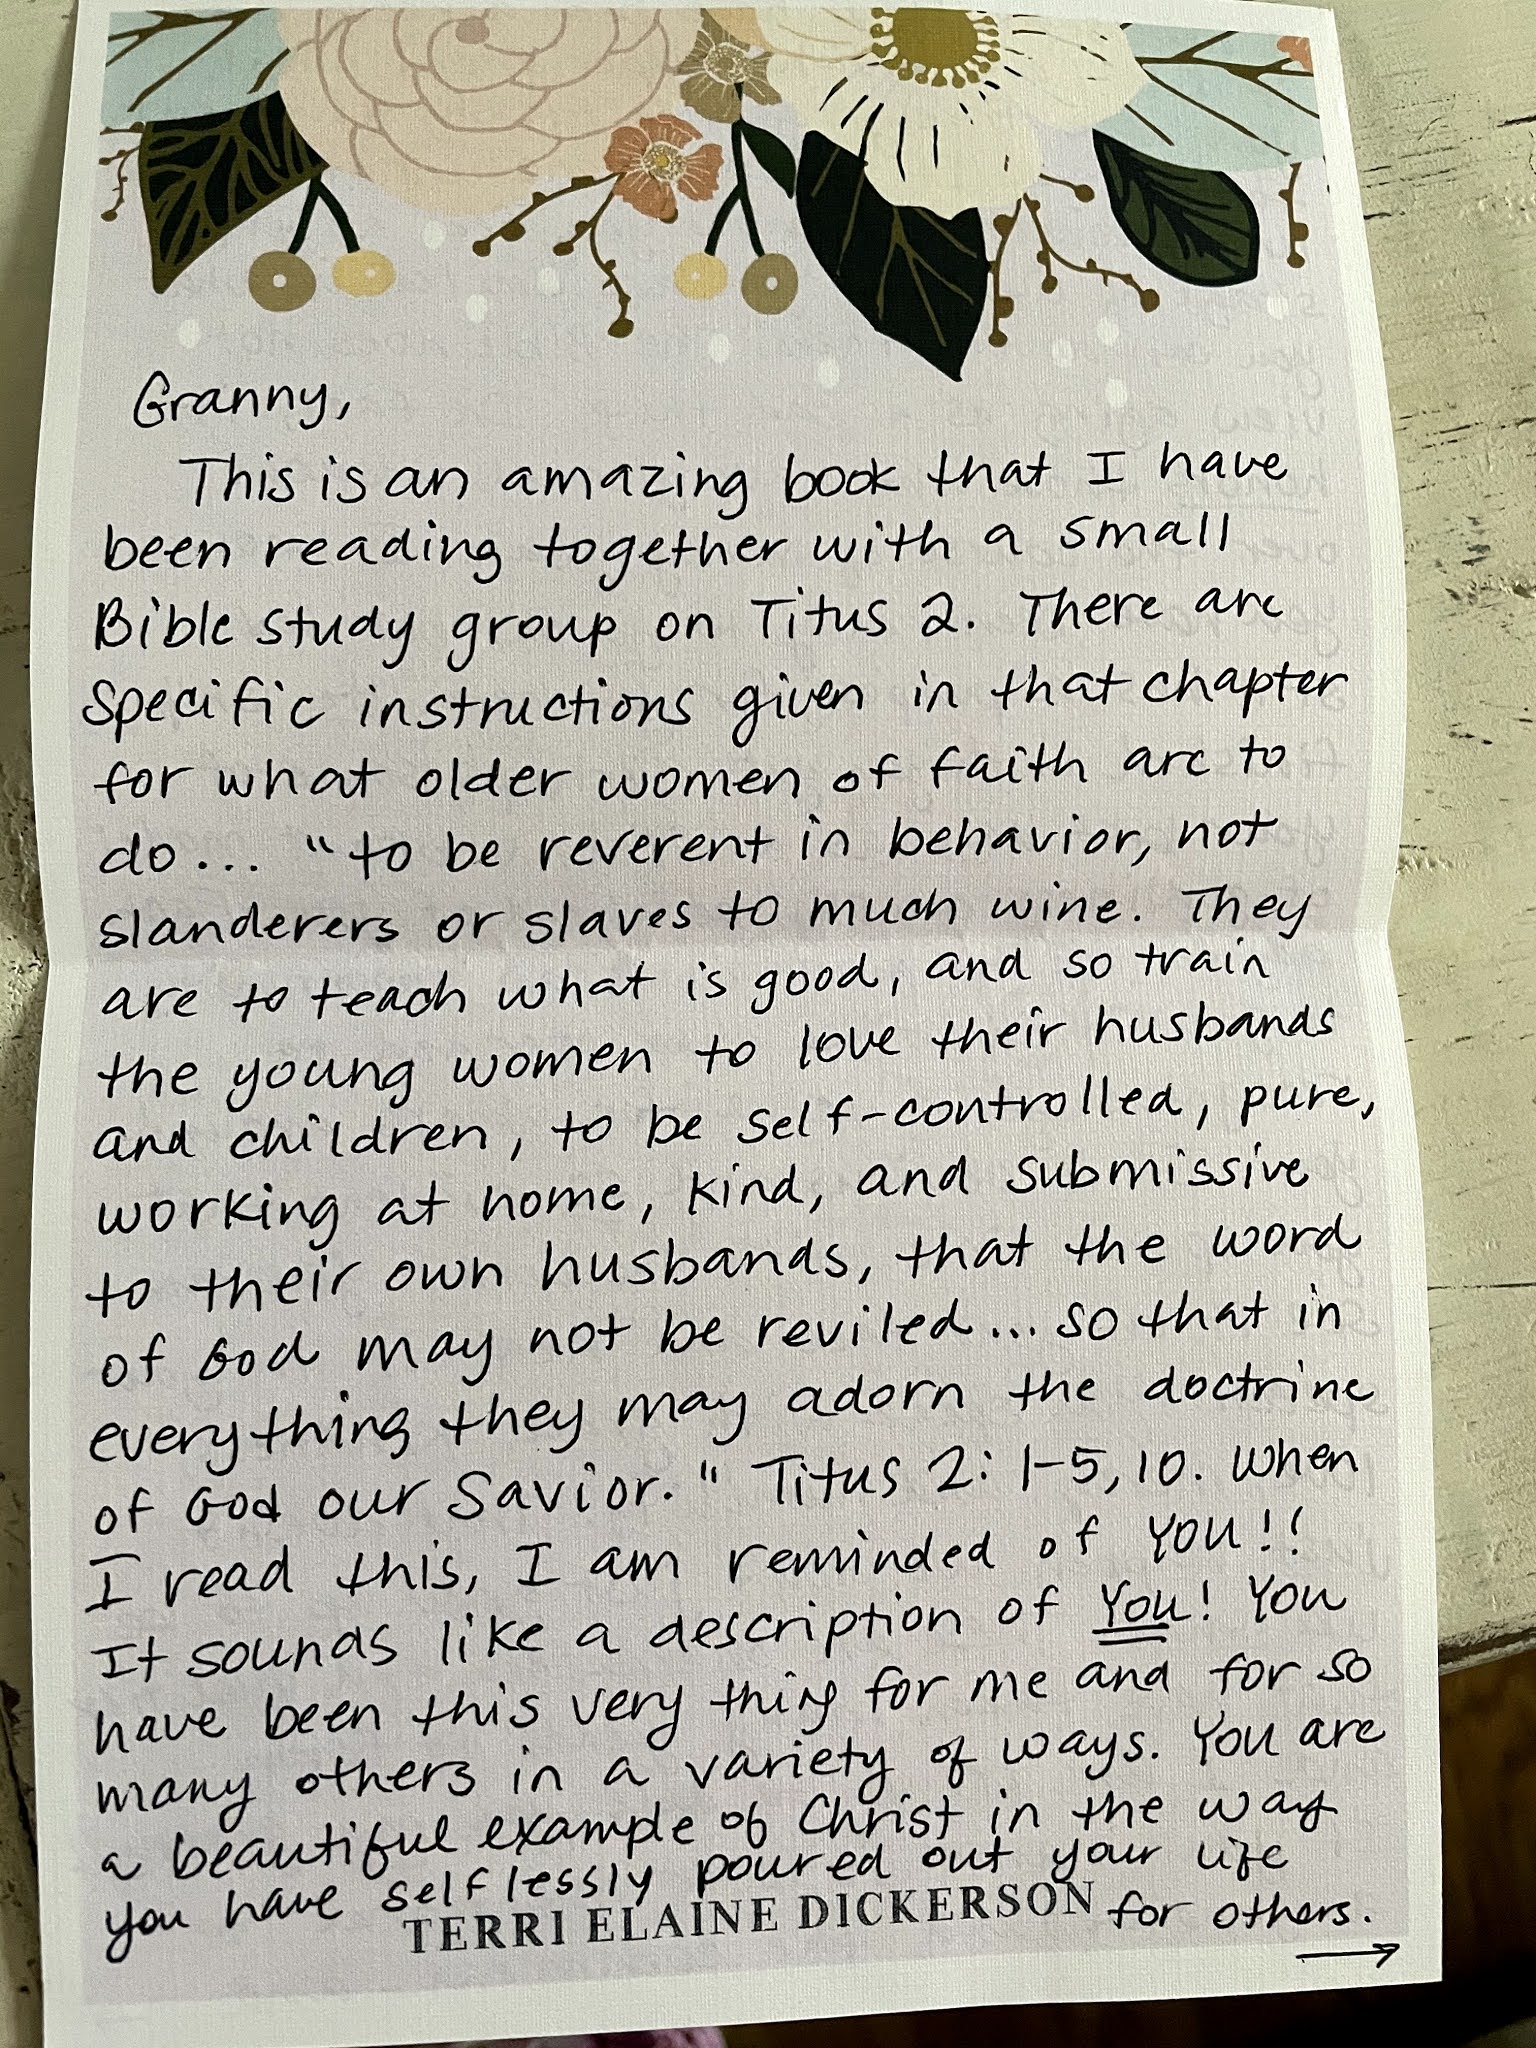 Granny,
This is an amazing book that I have
been reading together with a small
Bible study group on Titus 2. There are
specific instructions given in that chapter
for what older women of faith are to
do... "to be reverent in behavior, not
slanderers or slaves to much wine. They
are to teach what is good, and so train
the young women to love their husbands
and children, to be self-controlled, pure,
working at home, kind, and submissive
to their own husbands, that the word
of God may not be reviled... so that in
everything they may adorn the doctrine
of God our Savior." Titus 2: 1-5, 10. When
I read this, I am reminded of YOU!!
It sounds like a description of You! You
have been this very thing for me and for so
many others in a variety of ways. You are
a beautiful example of Christ in the way
you have selflessly poured out your life
for others.
TERRI ELAINE DICKERSON